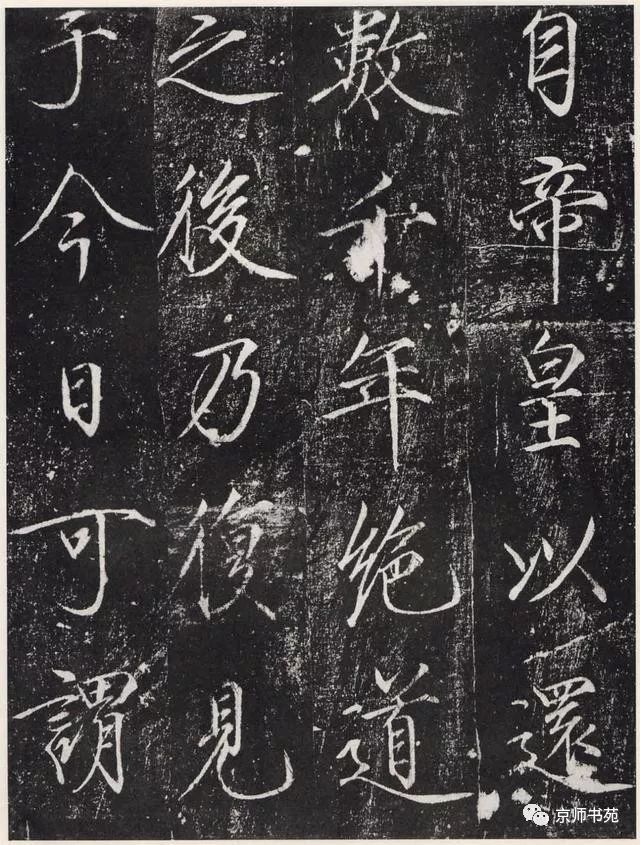 自帝皇以還
數千年絶道
之後乃復見
于今日可謂
京师书苑